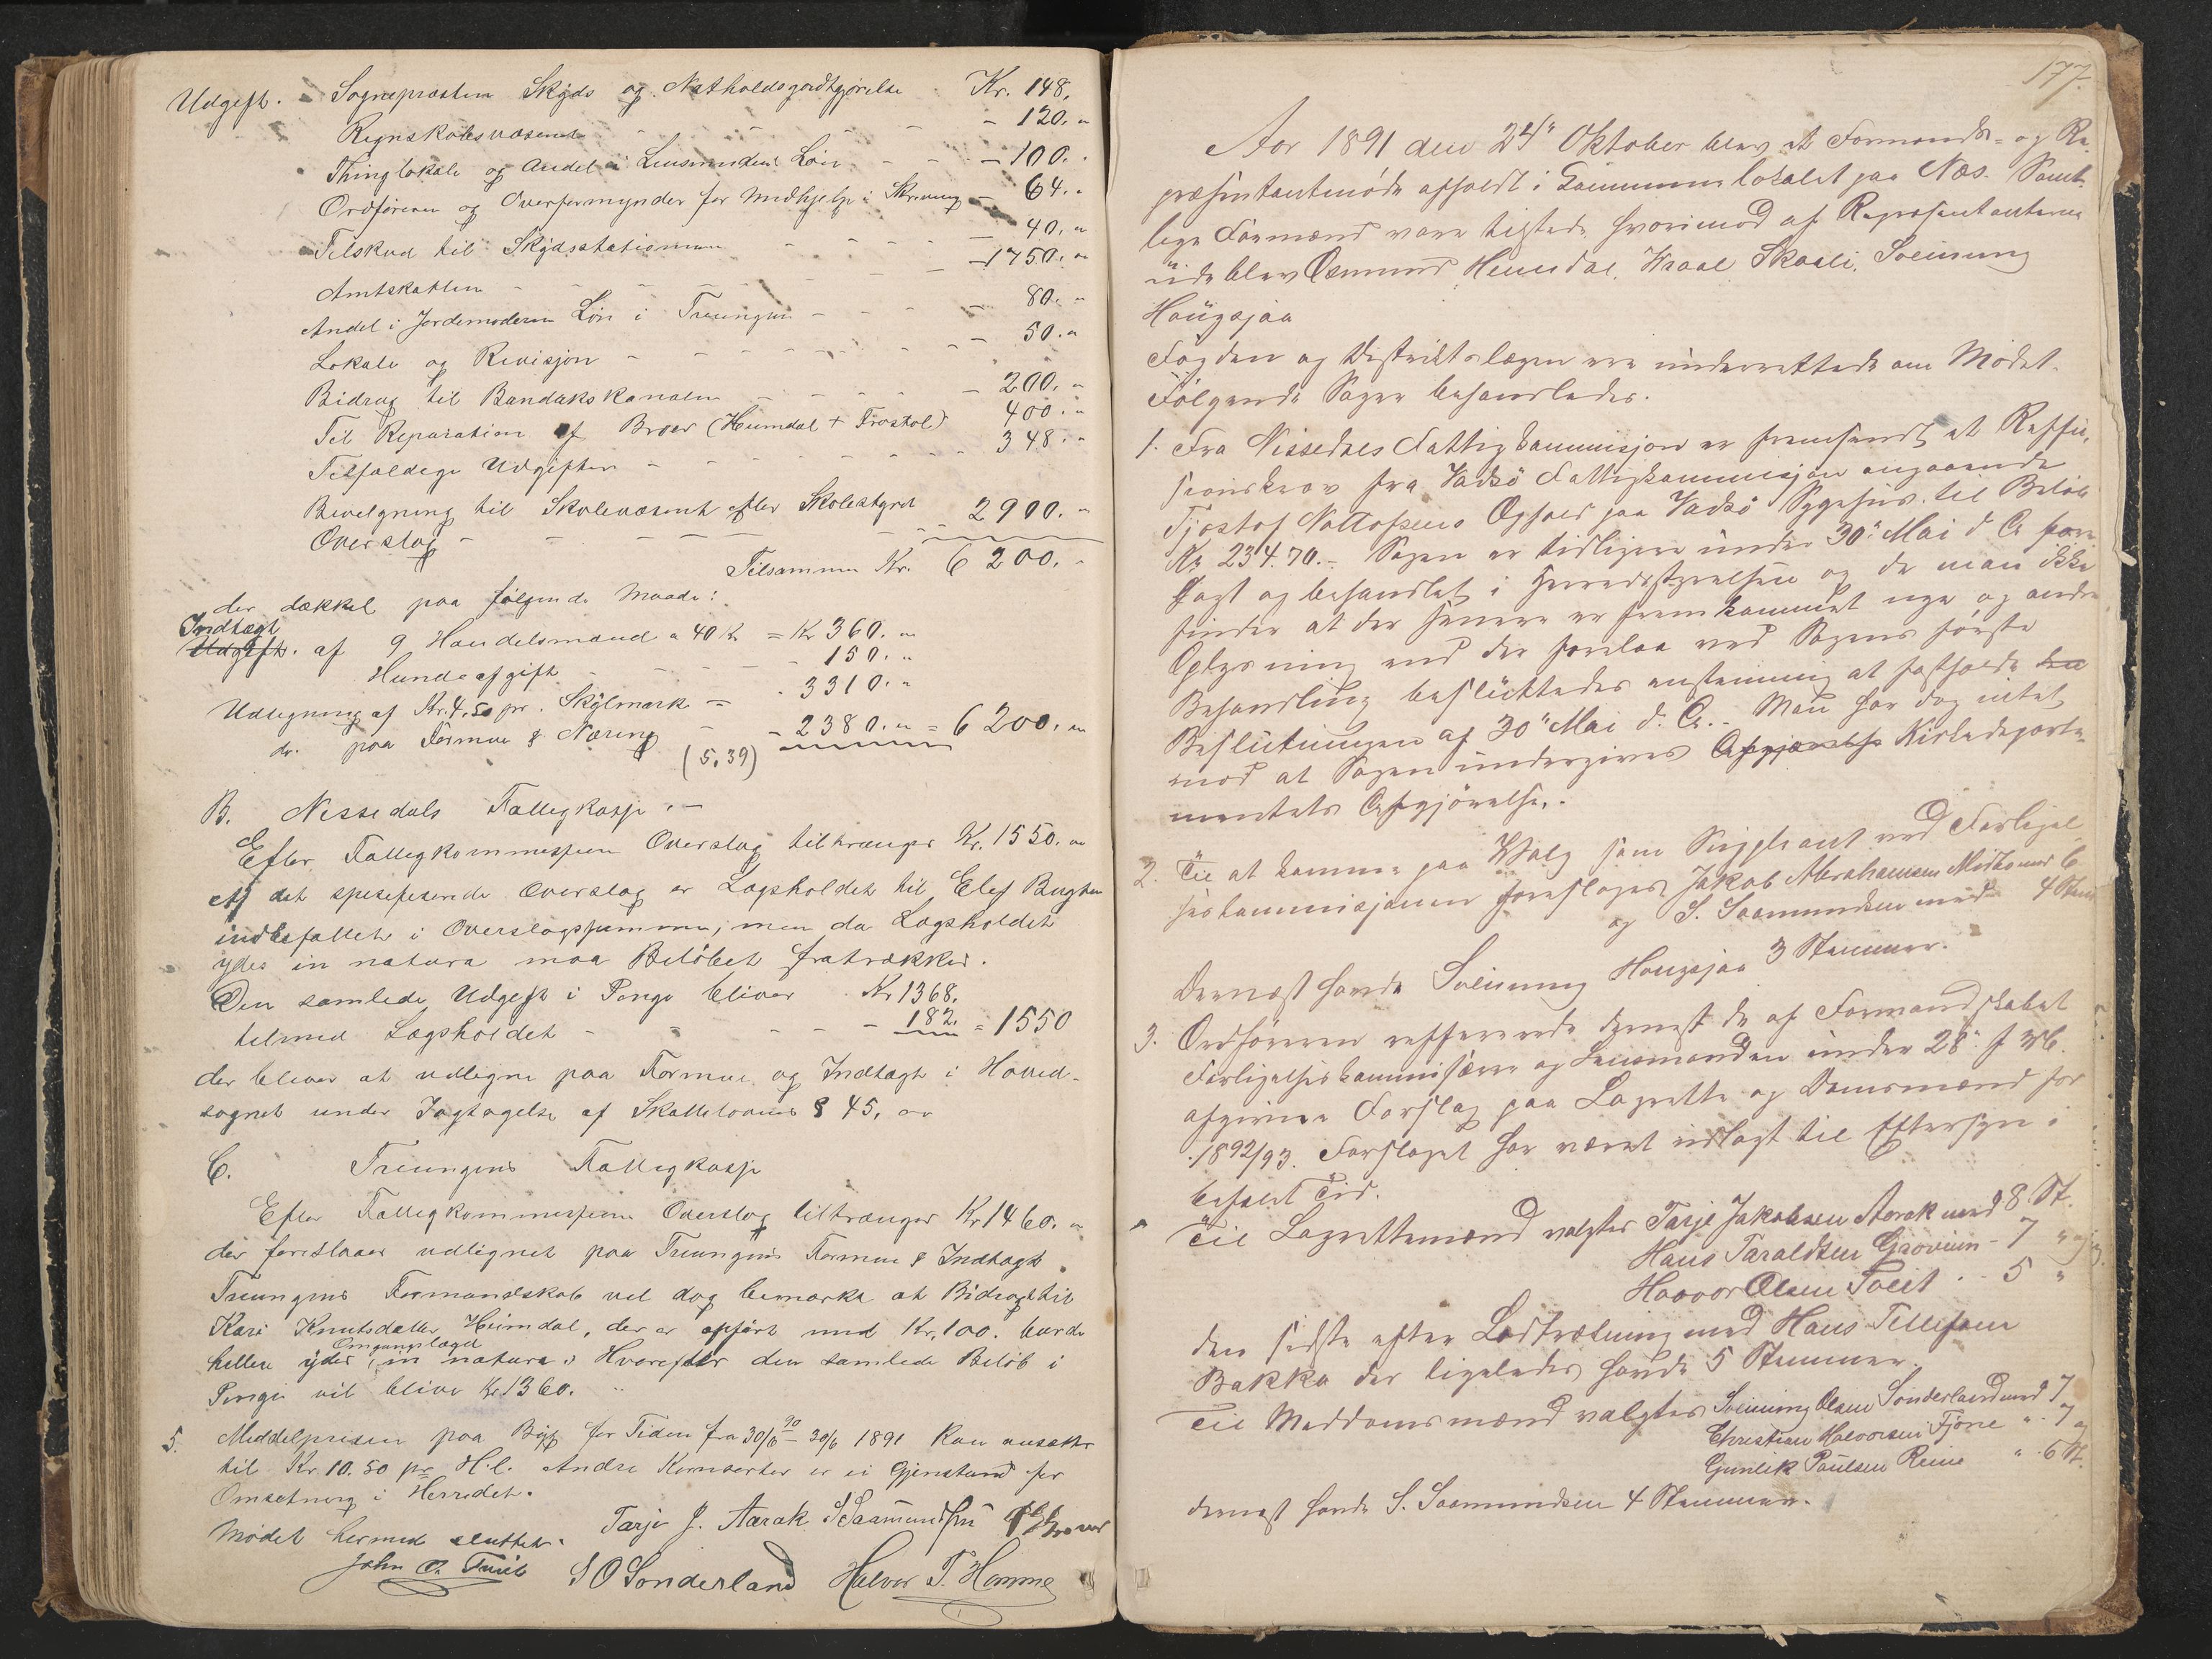 Udgift. - Sognepræsten Skyds og Natholdsgodtgjørelse Kr. 148,
Regnskabsvæsenet - - - - - 120. "
Thinglokale og Andel i Lensmandens Løn - - - 100. "
Ordføreren og Overformynder for Medhjelp i Skrivning - 64. "
Tilskud til Skydsstationen - - - - 40. "
Amtskatten - - - - - - 1750. "
Andel i Jordemoderens Løn i Treungen - - - 80. "
Lokale og Revisjon - - - - - - 50. "
Bidrag til Bandakskanalen - - - - 200. "
Til Reparation af Broer (Heimdal + Frostøl) 400. "
Tilfældige Udgifter - - - - - - 348. "
Bevilgning til Skolevæsenet efter Skolestyret
Overslag - - - - - - 2900. "
Tilsammen Kr. 6200. "
der dækkes paa følgende Maade:
Indtægt
Udgift. af 9 Handelsmænd a 40 Kr = Kr 360. "
Hundeafgift - - - - 150. "
Udligning af Kr. 4,50 pr. Skylmark = - 3310. "
do. paa Formue & Næring - - 2380. " = 6200. "
(5,39)
B. Nissedals Fattigkasse. -
Efter Fattigkommissjonens Overslag tiltrænges Kr. 1550. "
Af det spesifiserede Overslag er Lægsholdet til Elef Bugten
indbefattet i Overslagssummen, men da Lægsholdet
ydes in natura maa Beløbet fratrækkes.
Den samlede Udgift i Penge bliver . Kr 1368.
tilmed Lægsholdet - - - - - 182. = 1550
der bliver at udlegne paa Formue og Indtægt i Hoved-
sognet under Iagtagelse af Skattelovens § 45. "
C. Treungens Fattigkasse
Efter Fattigkommissjonens Overslag tiltrænges Kr 1460. "
der foreslaaes udlignet paa Treungens Formue & Indtægt.
Treungens Formandskab vil dog bemærke at Bidraget til
Kari Knutsdatter Heimdal, der er opført med Kr. 100. burde
Omgangslægd
hellere ydes, in natura. Hvorefter den samlede Beløb i
Penge vil blive Kr 1360. "
5. Middelprisen paa Byg for Tiden fra 30/6 90 - 30/6 1891 kan ansættes
til Kr. 10.50 pr H.l. Andre Kornsorter er ei Gjenstand for
Omsætning i Herredet.
Mødet hermed sluttet. Tarje J. Aarak S Saamundsen
John O. Tveit S O Sonderland Halvor T. Homme
177.
Aar 1891 den 24" Oktober blev et Formands- og Re-
præsentantmøde afholdt i Communelokalet paa Næs. Samt-
lige Formænd vare tilstede hvorimod af Repræsentanterne
udeblev Osmund Heimdal, Wraal Skaali, Sveinung
Haugsjaa
Fogden og Distriktslægen ere underrettede om Mødet.
Følgende Sager behandledes.
1. Fra Nissedals Fattigkommisjon er fremsendt et Reffu-
sionskrav fra Vadsø Fattigkommisjon angaaende
Tjøstof Nottofsens Ophold paa Vadsø Sygehus til Beløb
Kr 234.70. - Sagen er tidligere under 30" Mai d. A. fore-
lagt og behandlet i Herredsstyrelsen og da man ikke
finder at der senere er fremkommet nye og andre
Oplysning end der forelaa ved Sagens første
Behandling besluttedes enstemmig at fastholde den
Beslutningen af 30" Mai d. A. - Man har dog intet
mod at Sagen undergives Afgjørelse Kirkedeparte-
mentets Afgjørelse. -
2. Til at komme paa Valg som Suppleant ved Forligel-
seskommisjonen foreslages Jakob Abrahamsen Midtbø med 6
og S. Saamundsen med 4 Stem
Dernæst havde Sveinung Haugsjaa 3 Stemmer.
3. Ordføreren refererede dernæst de af Formandskabet
Forligelseskommissærer og Lensmanden under 28" f. M.
afgivne Forslag paa Lagrette og Domsmænd for
1892/93. Forslaget har været udlagt til Eftersyn i
befalet Tid.
Til Lagrettemænd valgtes Tarje Jakobsen Aarak med 8 St.
Hans Taraldsen Grovum - 7 " og
Haavor Olsen Tveit . - 5 "
den sidste efter Lodtrækning med Hans Tellefsen
Bakka der ligeledes havde 5 Stemmer.
Til Meddomsmænd valgtes Sveinung Olsen Sønderland med 7
Christian Halvorsen Fjone " 7 og
Gunlek Paulsen Reine " 6 St.
dernæst havde S. Saamundsen 4 Stemmer.